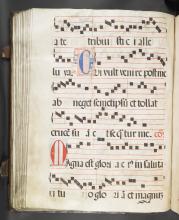 a te tribui sti c alle
lu ya. Qui vult venire post me
ab neget semetipsū et tollat
crucē su ā et seq̄tur me.
Magna est glori a e i⁹ in saluta
ri tu o glo ā et magnū